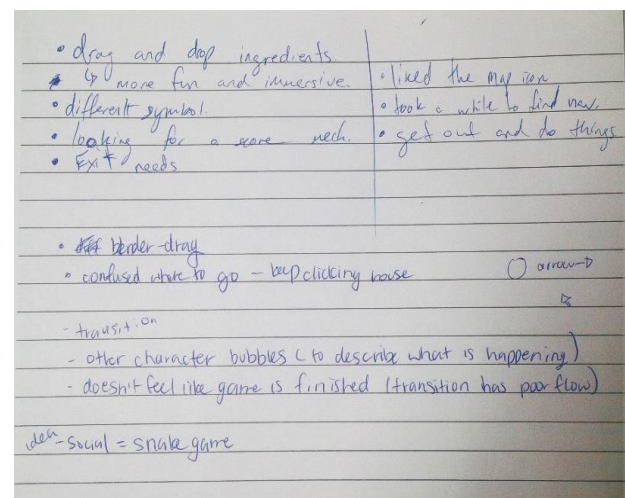 • drag and drop ingredients.
↳ more fun and immersive.
• different symbol.
• looking for a score mech.
• Exit needs
• liked the map icon
• took a while to find nav.
• get out and do things
• blender-drag
• confused where to go – keep clicking house
arrow
- transition
- other character bubbles (to describe what is happening)
- doesn't feel like game is finished (transition has poor flow)
idea - social = snake game